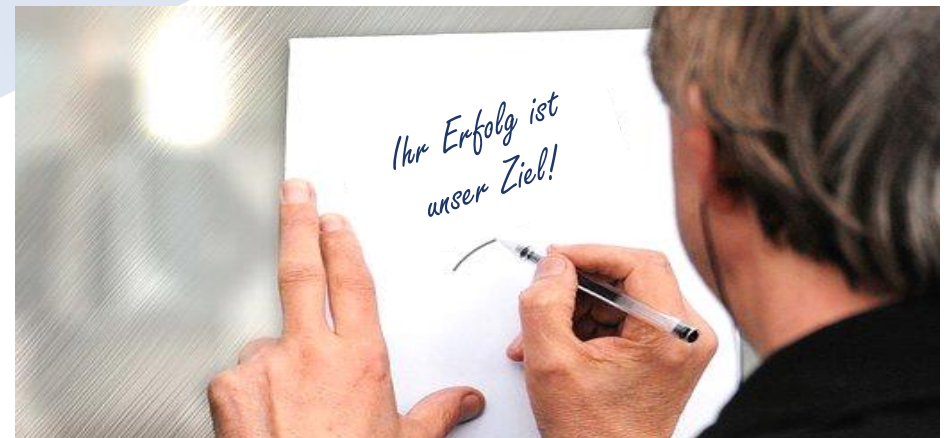 Ihr Erfolg ist
unser Ziel!